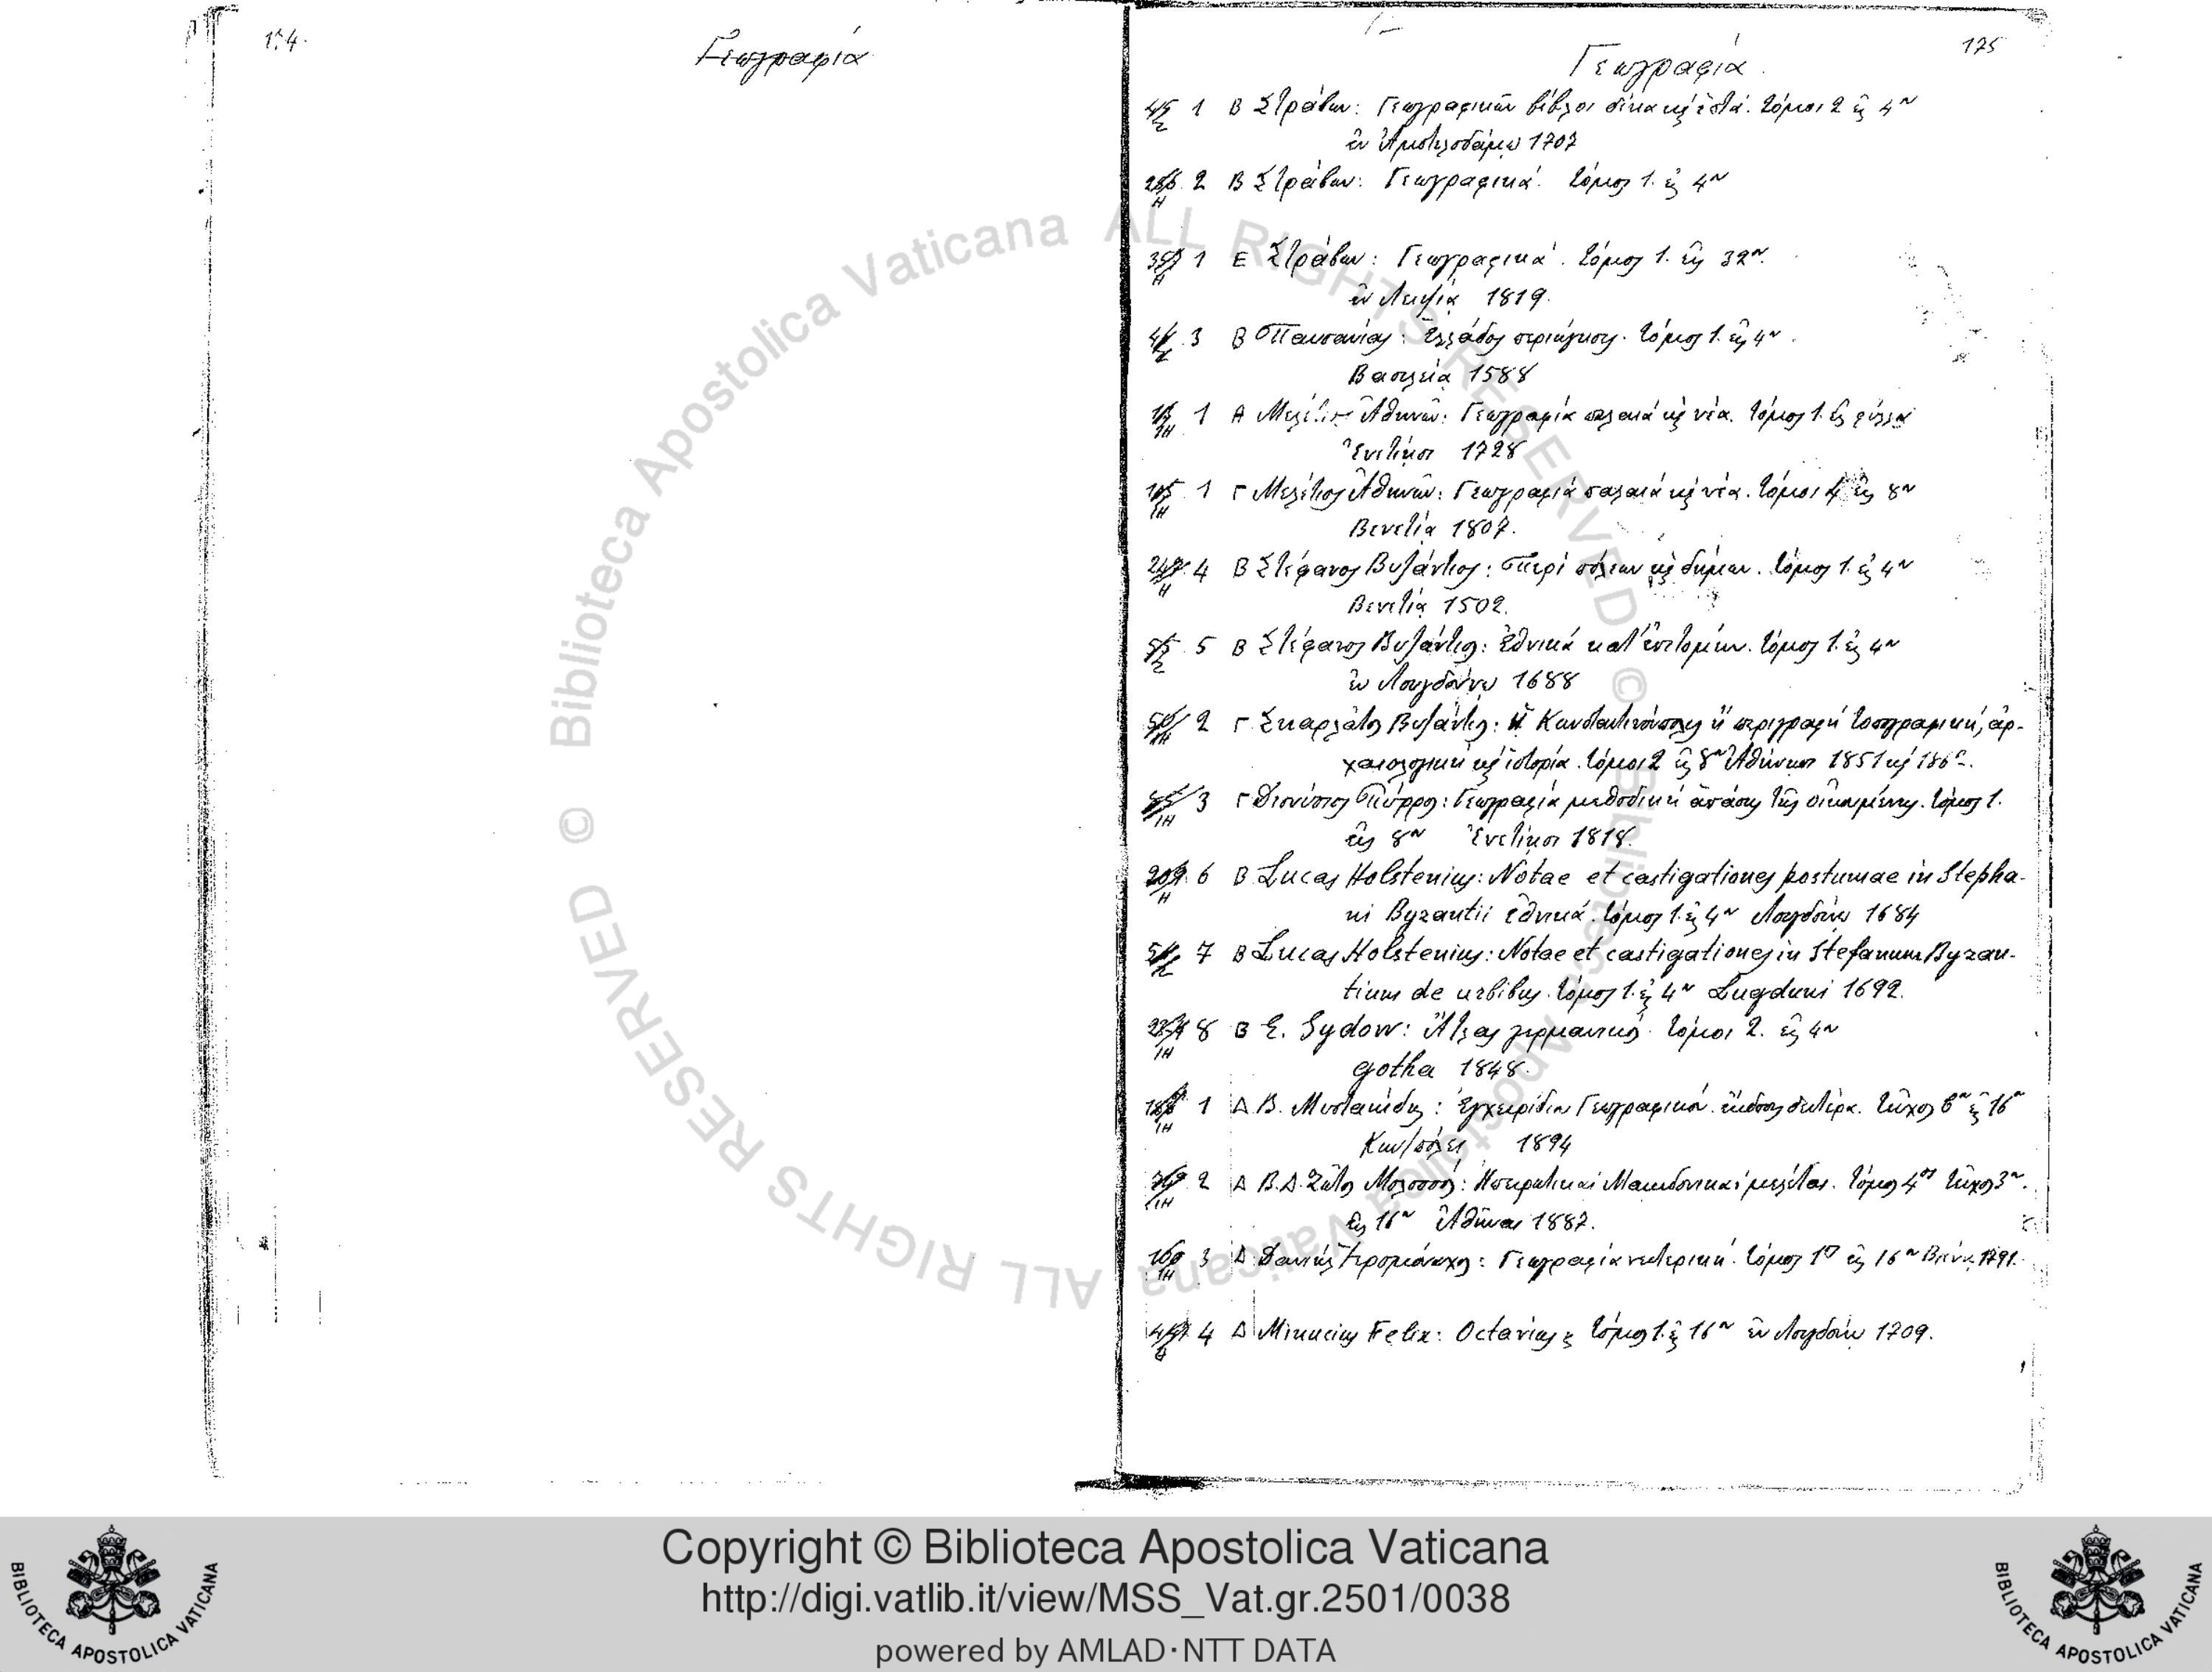 174.
Γεωγραφία
175
Γεωγραφία.
1 Β Στράβων: Γεωγραφικῶν βίβλοι δέκα κὶ ἑπτά. τόμοι 2 εἰς 4ον
ἐν Ἀμστελοδάμῳ 1707
2 Β Στράβων: Γεωγραφικά. τόμος 1. εἰς 4ον
1 Ε Στράβων: Γεωγραφικά. τόμος 1. εἰς 32ον.
ἐν Λειψίᾳ 1819.
3 Β Παυσανίας: Ἑλλάδος περιήγησις. τόμος 1. εἰς 4ον.
Βασιλείᾳ 1588
1 Α Ἀθηνῶν: Γεωγραφία παλαιά κὶ νέα. τόμος 1. εἰς φύλλα
Ἐνετίησι 1728
1 Γ Μελέτιος Ἀθηνῶν: Γεωγραφιά παλαιά κὶ νέα. τόμοι 4 εἰς 8ον
Βενετίᾳ 1807.
4 Β Στέφανος Βυζάντιος: Περὶ πόλεων κὶ δήμων. τόμος 1. εἰς 4ον
Βενετίᾳ 1502.
5 Β Στέφανος Βυζάντιος: Ἐθνικά κατ' ἐπιτομήν. τόμος 1. εἰς 4ον
ἐν Λουγδούνῳ 1688
2 Γ Σκαρλάτος Βυζάντιος: Ἡ Κωνσταντινούπολις ἢ περιγραφή τοπογραφική, ἀρ-
χαιολογική κὶ ἱστορία. τόμοι 2 εἰς 8ον Ἀθήνησι 1851 κὶ
3 Γ Διονύσιος Πύρρος: Γεωγραφία μεθοδική ἁπάσης τῆς οἰκουμένης. τόμος 1.
εἰς 8ον Ἐνετίησι 1818.
6 Β Lucas Holstenius: Notae et castigationes postumae in Stepha-
ni Byzantii ἐθνικά. τόμος 1. εἰς 4ον Λουγδούνῳ 1684
7 Β Lucas Holstenius: Notae et castigationes in Stefanum Byzan-
tium de urbibus. τόμος 1. εἰς 4ον Lugduni 1692.
8 Β E. Sydow: Ἄτλας γερμανικός. τόμοι 2. εἰς 4ον
Gotha 1848.
1 Δ Β. Μυστακίδης: Ἐγχειρίδιον Γεωγραφικόν. ἔκδοσις δευτέρα. τεῦχος εἰς 16ον
Κων/πόλει 1894
2 Δ Β.Δ. Ζώτος Μολοσσός: Ἠπειρωτικαί Μακεδονικαί μελέται. τόμος 4ος τεῦχος 3ον.
εἰς 16ον Ἀθῆναι 1887.
3 Δ Δανιήλ Ἱερομόναχος: Γεωγραφία νεωτερική. τόμος 1ος εἰς 16ον 1791.
4 Δ Minucius Felix: Octavius τόμος 1. εἰς 16ον ἐν Λουγδούνῳ 1709.
© Biblioteca Apostolica Vaticana ALL RIGHTS RESERVED © Biblioteca Apostolica Vaticana ALL RIGHTS RESERVED
BIBLIOTECA APOSTOLICA VATICANA
Copyright © Biblioteca Apostolica Vaticana
http://digi.vatlib.it/view/MSS_Vat.gr.2501/0038
powered by AMLAD·NTT DATA
BIBLIOTECA APOSTOLICA VATICANA